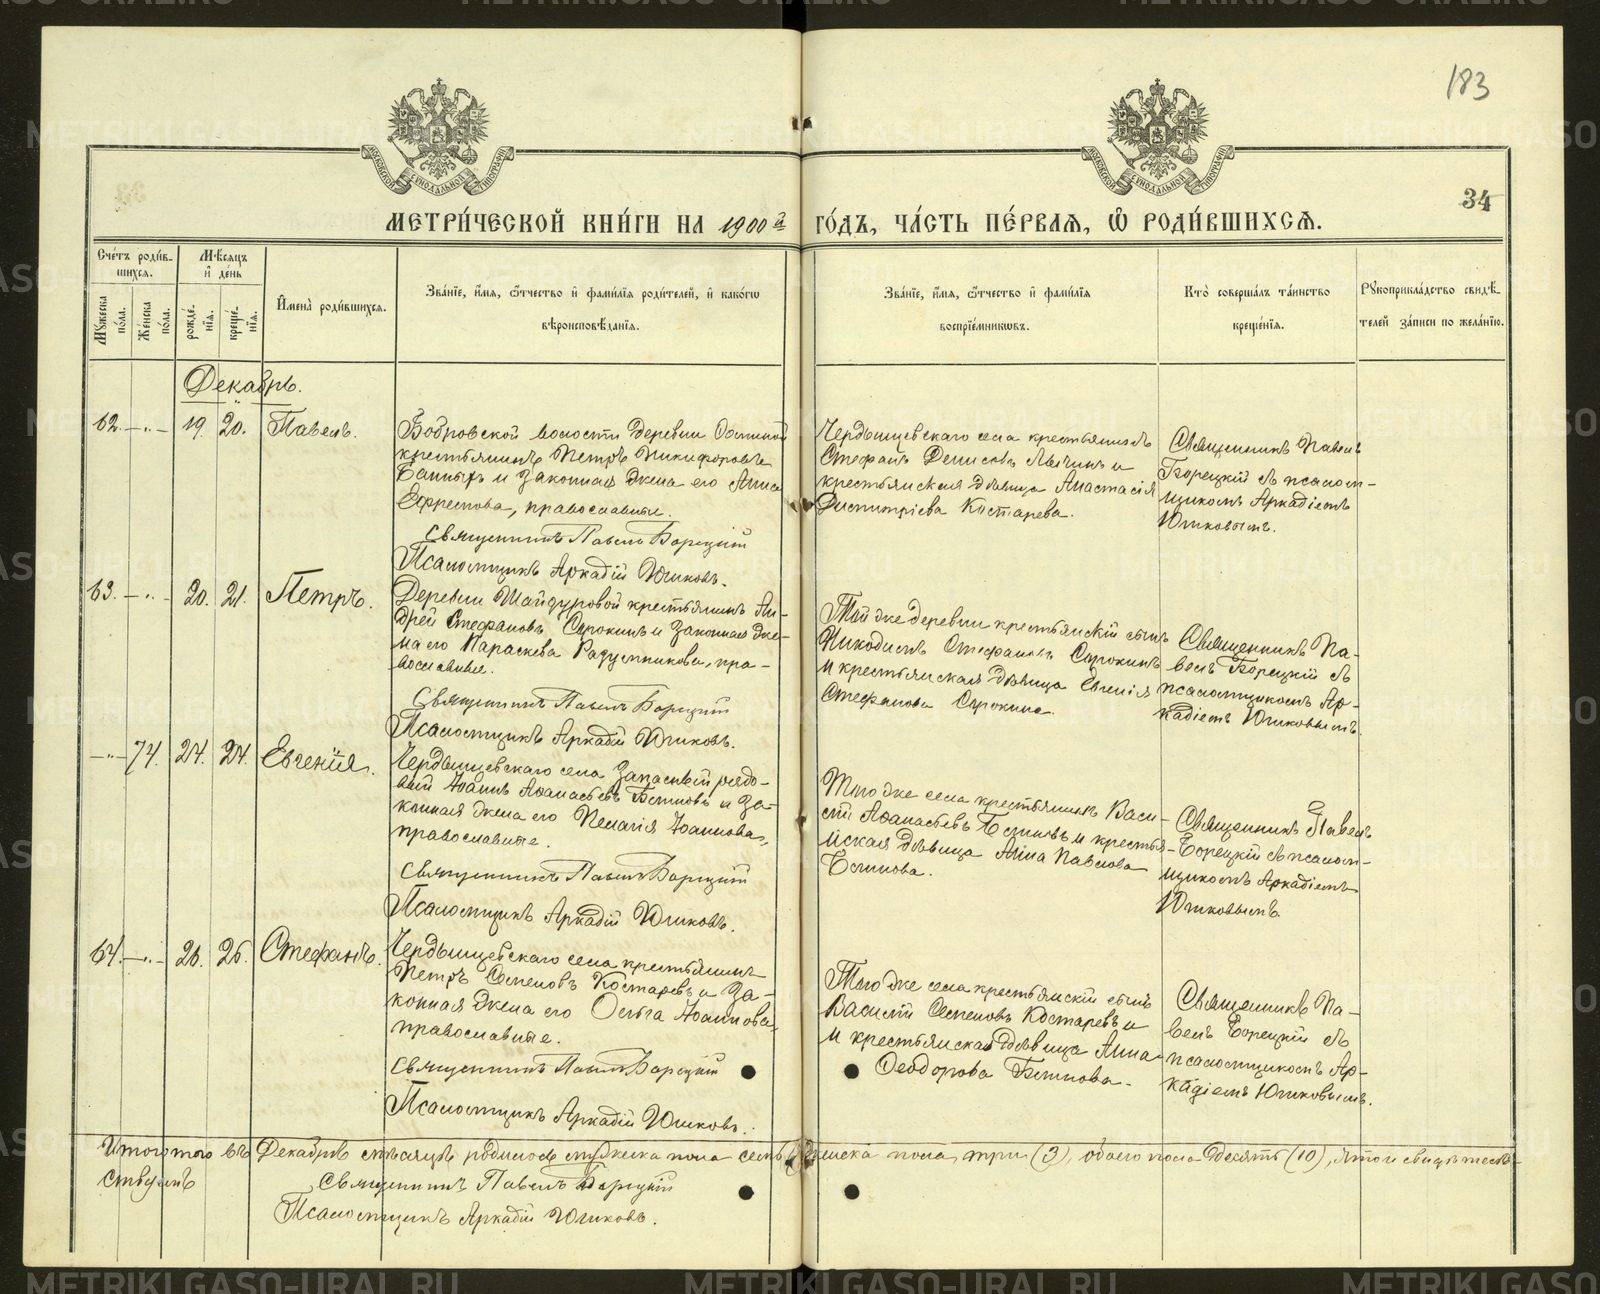 183
34
МЕТРИ́ЧЕСКОЙ КНИ́ГИ НА 1900й ГО́ДЪ, ЧА́СТЬ ПЕ́РВАЯ, Ѡ РОДИ́ВШИХСЯ.
Сче́тъ роди́вшихся.
Мужеска по́ла.
Же́нска пола.
Мѣ́сяцъ и҆ де́нь
рожде́нїя.
креще́нїя.
И҆мена̀ роди́вшихся.
Зва́нїе, и҆́мя, ѻ҆́тчество и҆ фами́лїя роди́телей, и҆ како́гѡ
вѣроисповѣ́данїя.
Зва́нїе, и҆́мя, ѻ҆́тчество и҆ фами́лїя
воспрїе́мникѡвъ.
Кто̀ соверша́лъ та́инство
креще́нїя.
Рꙋкоприкла́дство свидѣ́-
телей за́писи по жела́нїю.
Декабрь.
62. -"- 19. 20. Павелъ.
Бобровской волости деревни
крестьянинъ Петръ Никифоровъ
и законная жена его Анна
Ефремова, православные.
Священникъ Павелъ Борецкій
Псаломщикъ Аркадій Юшковъ.
Чердынцевскаго села крестьянинъ
Стефанъ Денисовъ и
крестьянская дѣвица Анастасія
Димитріева Костарева.
Священникъ Павелъ
Борецкій съ псалом-
щикомъ Аркадіемъ
Юшковымъ.
63. -"- 20. 21. Петръ.
Деревни Шайдуровой крестьянинъ Ан-
дрей Стефановъ Сорокинъ и законная же-
на его Параскева Радумникова, пра-
вославные.
Священникъ Павелъ Борецкій
Псаломщикъ Аркадій Юшковъ.
Той же деревни крестьянскій сынъ
Никодимъ Стефановъ Сорокинъ
и крестьянская дѣвица Евгенія
Стефанова Сорокина.
Священникъ Па-
велъ Борецкій съ
псаломщикомъ Ар-
кадіемъ Юшковымъ.
-"- 74. 24. 24. Евгенія.
Чердынцевскаго села запасный рядо-
вый Іоаннъ Аѳанасьевъ и за-
конная жена его Пелагія Іоаннова,
православные.
Священникъ Павелъ Борецкій
Псаломщикъ Аркадій Юшковъ.
Того же села крестьянинъ Васи-
лій Аѳанасьевъ и крестья-
нская дѣвица Анна Павлова
Священникъ Павелъ
Борецкій съ псалом-
щикомъ Аркадіемъ
Юшковымъ.
64. -"- 26. 26. Стефанъ.
Чердынцевскаго села крестьянинъ
Петръ Семеновъ Костаревъ и за-
конная жена его Ольга Іоаннова,
православные.
Священникъ Павелъ Борецкій
Псаломщикъ Аркадій Юшковъ.
Того же села крестьянскій сынъ
Василій Семеновъ Костаревъ и
и крестьянская дѣвица Анна
Ѳеодорова
Священникъ Па-
велъ Борецкій съ
псаломщикомъ Ар-
кадіемъ Юшковымъ.
Итого въ Декабрѣ мѣсяцѣ родилось мужеска пола семь (7), женска пола три (3), обоего пола десять (10), въ томъ свидѣтель-
ствуемъ
Священникъ Павелъ Борецкій
Псаломщикъ Аркадій Юшковъ.
METRIKI.GASO-URAL.RU